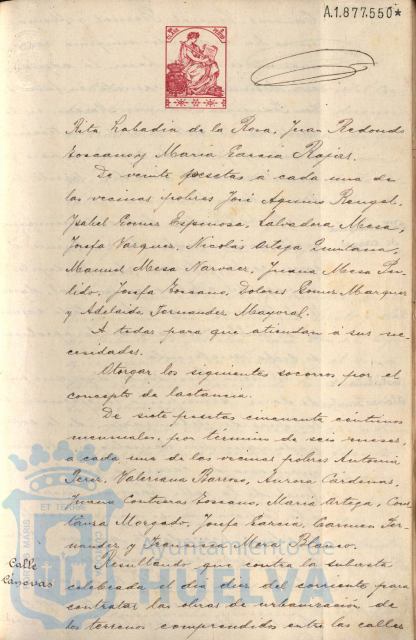 A.1.877.550*
Rita Labadia de la Rosa, Juan Redondo
Toscano y Maria Garcia Rojas.
De veinte pesetas á cada una de
los vecinos pobres José Aquino Rengel,
Isabel Gomez Espinosa, Salvadora Mesa,
Josefa Vazquez, Nicolás Ortega Quintana,
Manuel Mesa Narvaez, Juana Mesa Pu-
lido, Josefa Toscano, Dolores Gomez Marquez
y Adelaida Fernandez Mayoral.
A todas para que atiendan á sus ne-
cesidades.
Otorgar los siguientes socorros por el
concepto de lactancia.
De siete pesetas cincuenta céntimos
mensuales, por término de seis meses,
á cada una de las vecinas pobres Antonia
Perez, Valeriana Barroso, Aurora Cárdenas,
Juana Contreras Toscano, Maria Ortega, Cons
tanza Morgado, Josefa Garcia, Carmen Fer-
nandez y Francisca Mora Blanco.
Calle
Canovas
Resultando que contra la subasta
celebrada el dia diez del corriente para
contratar las obras de urbanización de
los terrenos comprendidos entre las calles
Ayuntamiento de
HUELVA